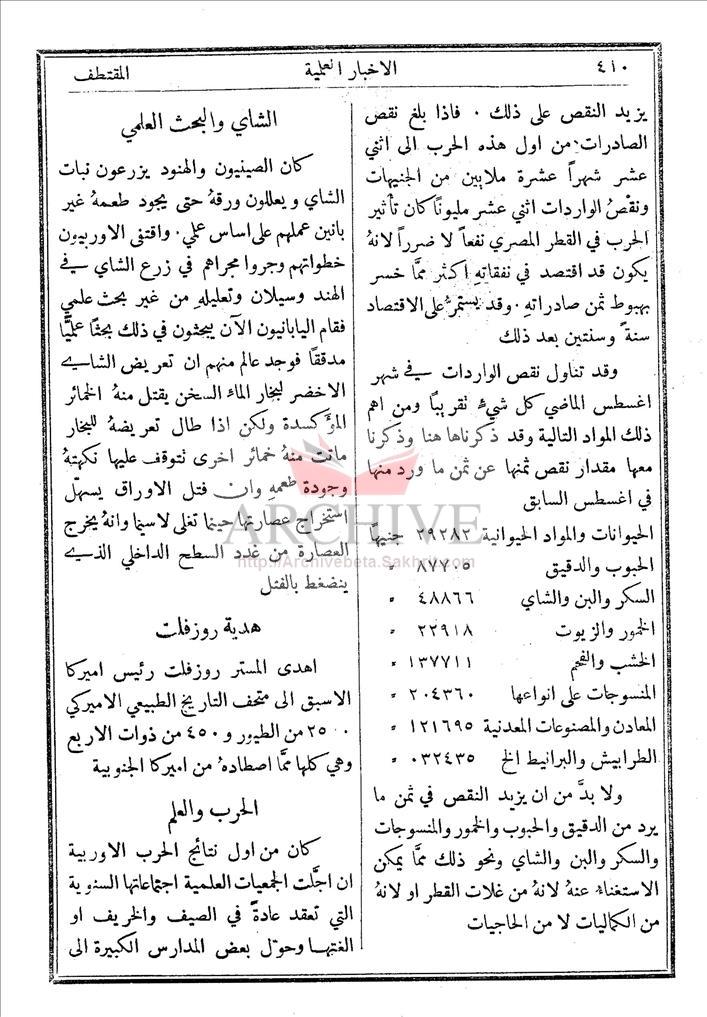 ٤١٠
الاخبار العلمية
المقتطف
يزيد النقص على ذلك . فاذا بلغ نقص
الصادرات من اول هذه الحرب الى اثني
عشر شهراً عشرة ملايين من الجنيهات
ونقصُ الواردات اثني عشر مليوناً كان تأثير
الحرب في القطر المصري نفعاً لا ضرراً لانهُ
يكون قد اقتصد في نفقاتهِ اكثر ممَّا خسر
بهبوط ثمن صادراتهِ . وقد يستمرُّ على الاقتصاد
سنةً وسنتين بعد ذلك
وقد تناول نقص الواردات في شهر
اغسطس الماضي كل شيءٍ تقريباً ومن اهم
ذلك المواد التالية وقد ذكرناها هنا وذكرنا
معها مقدار نقص ثمنها عن ثمن ما ورد منها
في اغسطس السابق
الحيوانات والمواد الحيوانية ٢٩٢٨٢ جنيهاً
الحبوب والدقيق ٨٧٧٠٥ =
السكر والبن والشاي ٤٨٨٦٦ =
الخمور والزيوت ٢٢٩١٨ =
الخشب والفحم ١٣٧٧١١ =
المنسوجات على انواعها ٢٠٤٣٦٠ =
المعادن والمصنوعات المعدنية ١٢١٦٩٥ =
الطرابيش والبرانيط الخ ٠٣٢٤٣٥ =
ولا بدَّ من ان يزيد النقص في ثمن ما
يرد من الدقيق والحبوب والخمور والمنسوجات
والسكر والبن والشاي ونحو ذلك ممَّا يمكن
الاستغناءُ عنهُ لانهُ من غلات القطر او لانهُ
من الكماليات لا من الحاجيات
الشاي والبحث العلمي
كان الصينيون والهنود يزرعون نبات
الشاي ويعللون ورقهُ حتى يجود طعمهُ غير
بانين عملهم على اساس علمي . واقتفى الاوربيون
خطواتهم وجروا مجراهم في زرع الشاي في
الهند وسيلان وتعليلهِ من غير بحث علمي
فقام اليابانيون الآن يبحثون في ذلك بحثاً علميًّا
مدققاً فوجد عالم منهم ان تعريض الشاي
الاخضر لبخار الماء السخن يقتل منهُ الخمائر
المؤكسدة ولكن اذا طال تعريضهُ للبخار
ماتت منهُ خمائر اخرى تتوقف عليها نكهتهُ
وجودة طعمهِ وان فتل الاوراق يسهّل
استخراج عصارتها حينما تغلى لاسيما وانهُ يخرج
العصارة من غدد السطح الداخلي الذي
ينضغط بالفتل
هدية روزفلت
اهدى المستر روزفلت رئيس اميركا
الاسبق الى متحف التاريخ الطبيعي الاميركي
٢٥٠٠ من الطيور و ٤٥٠ من ذوات الاربع
وهي كلها ممَّا اصطادهُ من اميركا الجنوبية
الحرب والعلم
كان من اول نتائج الحرب الاوربية
ان اجَّلت الجمعيات العلمية اجتماعاتها السنوية
التي تعقد عادةً في الصيف والخريف او
الغتها وحوّل بعض المدارس الكبيرة الى
ARCHIVE
http://Archivebeta.Sakhrit.com